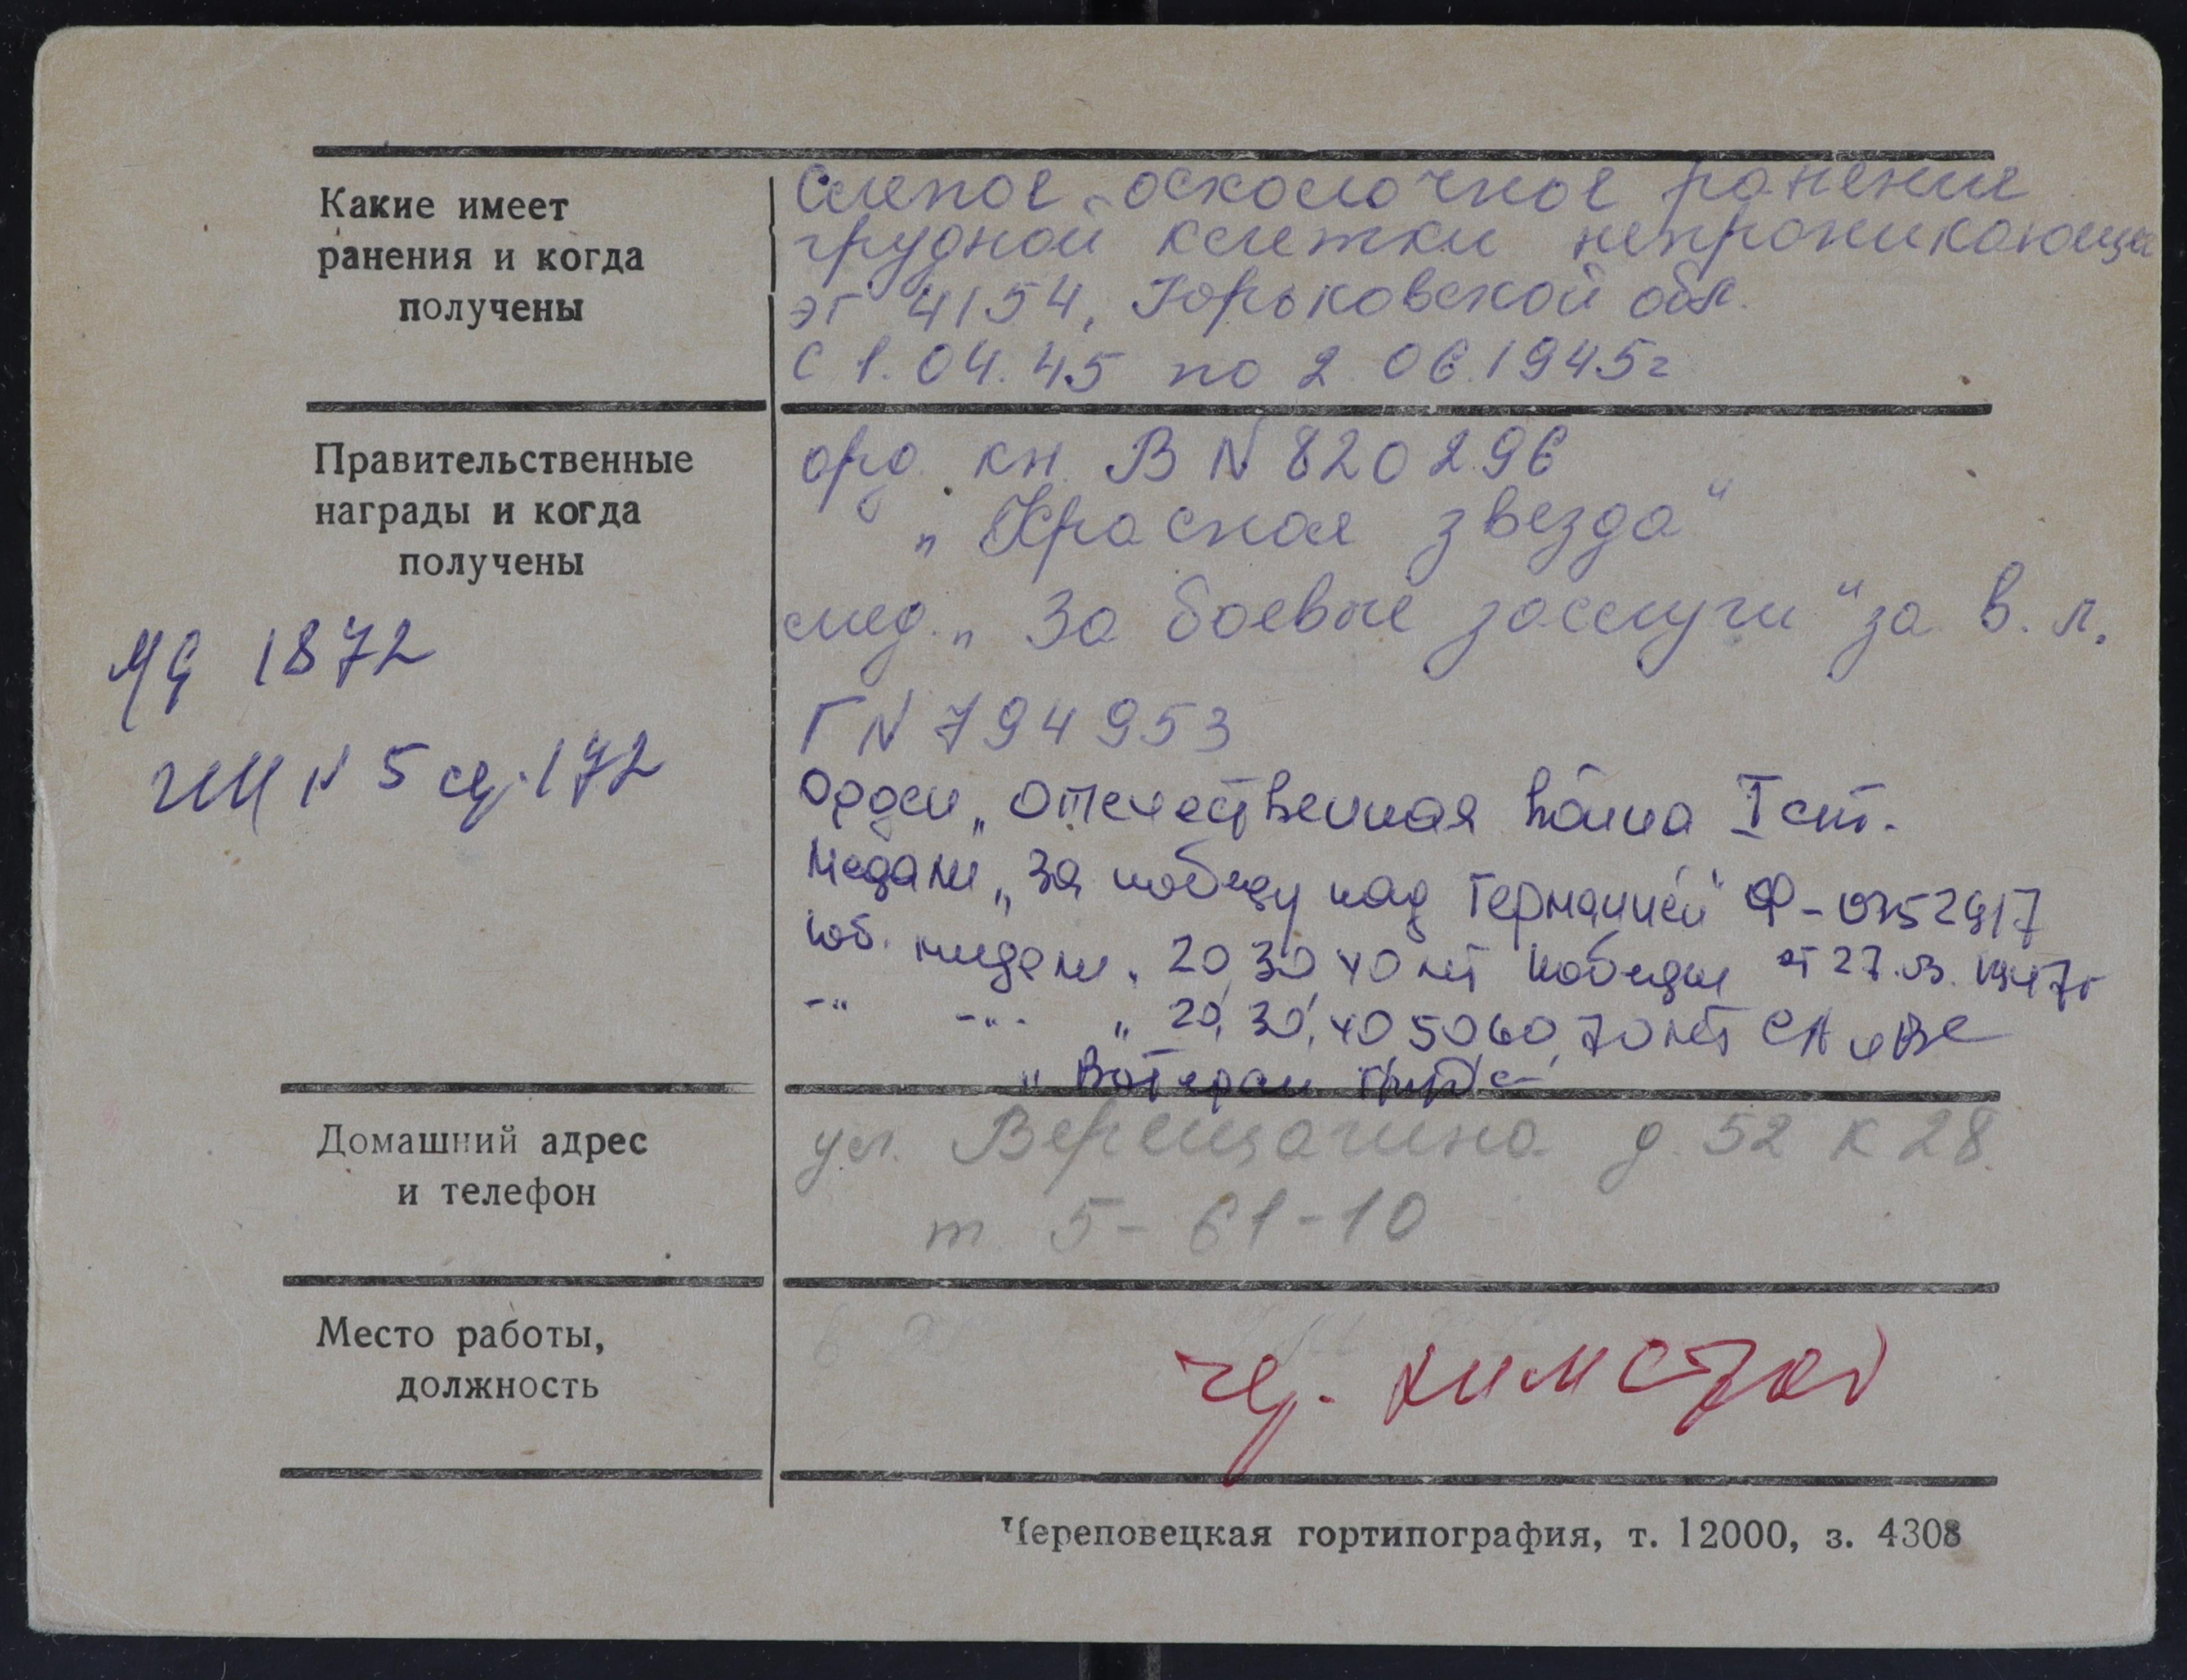 Какие имеет
ранения и когда
получены
Слепое осколочное ранение
грудной клетки непроникающе
ЭГ 4154, Горьковской обл.
с 1.04.45 по 2 06.1945г
Правительственные
награды и когда
получены
орд. кн. В N 820296
„Красная звезда“
мед. „За боевые заслуги“ за в. л.
Г N 794953
Орден „Отечественная война I ст.
Медаль „За победу над Германией“ Ф-0352917
юб. медали „ 20, 30, 40 лет Победы от 27. 1947г
-"- -"- „ 20, 30, 40 50 60, 70 лет СА и ВС
„ Ветеран труда
1872
N 5 172
Домашний адрес
и телефон
ул. Верещагина д. 52 к 28.
т. 5-61-10
Место работы,
должность
Череповецкая гортипография, т. 12000, з. 4308